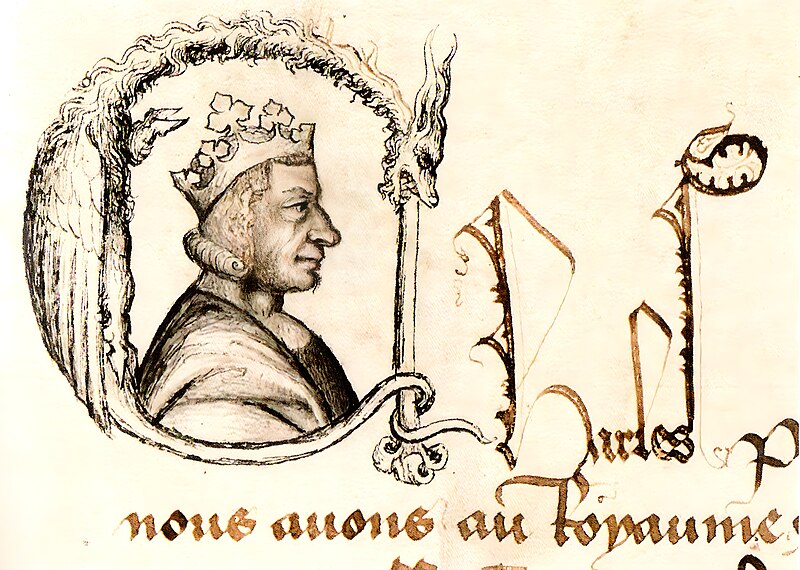 Charles p
nous auons au Royaume